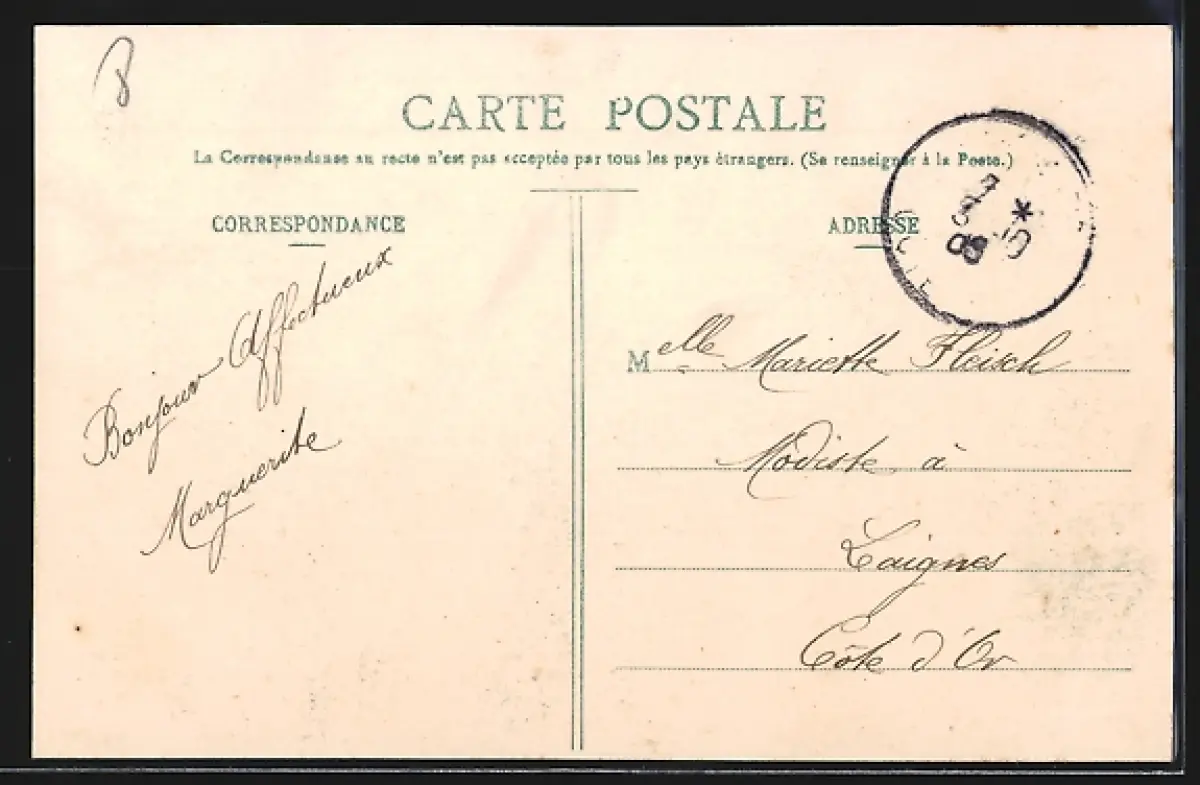 CARTE POSTALE
La Correspondance au recto n'est pas acceptée par tous les pays étrangers. (Se renseigner à la Poste.)
CORRESPONDANCE
ADRESSE
Bonjour Affectueux
Marguerite
Melle Mariette Fleisch
Modiste à
Laignes
Côte d'Or